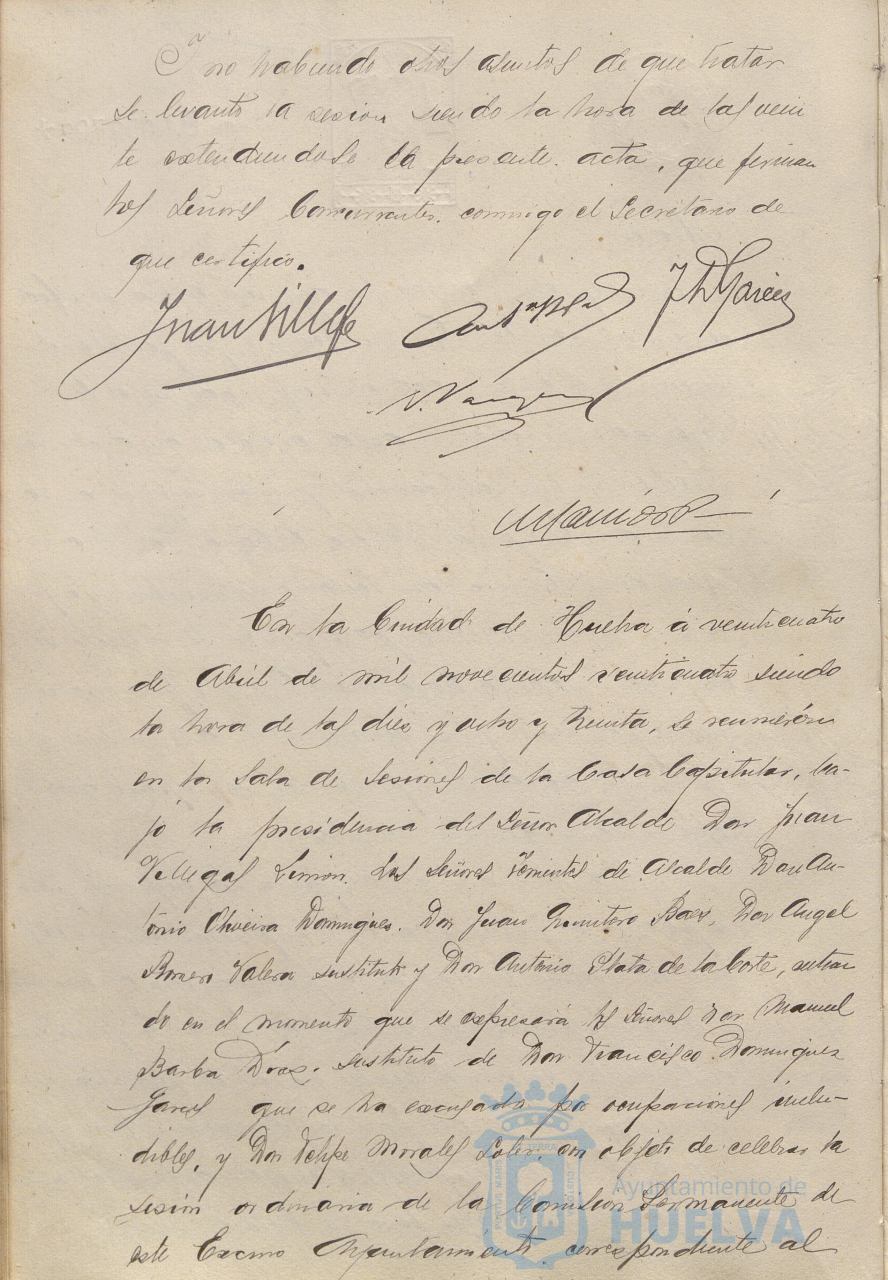 Y no habiendo otros asuntos de que tratar
se levantó la sesion siendo la hora de las vein
te extendiendose la presente acta, que firman
los Señores Concurrentes, conmigo el Secretario de
que certifico.
Juan Villegas
J D Garces
V. Vazquez
En la Ciudad de Huelva á veinticuatro
de Abril de mil novecientos veinticuatro siendo
la hora de las diez y ocho y treinta, se reunieron
en la Sala de Sesiones de la Casa Capitular, ba-
jo la presidencia del Señor Alcalde Don Juan
Villegas Limon, los Señores Tenientes de Alcalde Don An-
tonio Oliveira Dominguez, Don Juan Quintero Baez, Don Angel
Romero Valera sustituto y Don Antonio Plata de la Corte, entran
do en el momento que se expresará los Señores Don Manuel
Barba Diaz, sustituto de Don Francisco Dominguez
Garces que se ha excusado por ocupaciones inelu-
dibles, y Don Felipe Morales Soler, con objeto de celebrar la
sesión ordinaria de la Comision Permanente de
este Excmo Ayuntamiento correspondiente al
Ayuntamiento de
HUELVA